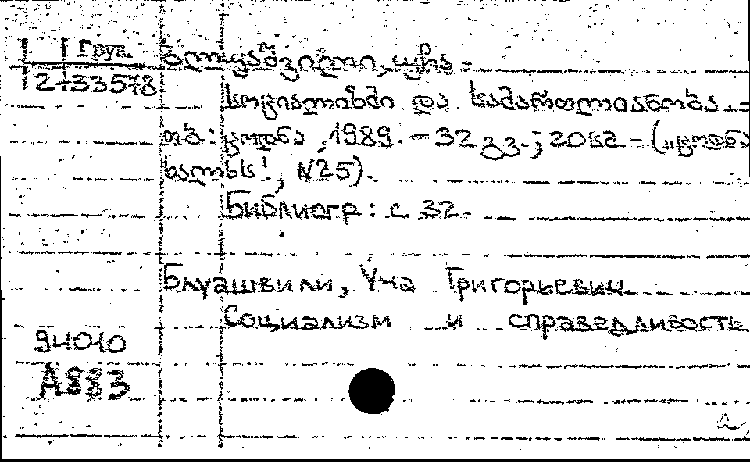 Груп. ბლუაშვილი, უჩა.
2-133578
სოციალიზმი და სამართლიანობა. -
თბ.: ცოდნა, 1989. - 32 გვ.; 20 სმ - („ცოდნა
ხალხს!", N25).
Библиогр: с. 32.
Блуашвили, Уча Григорьевич
Социализм и справедливость
94010
A883